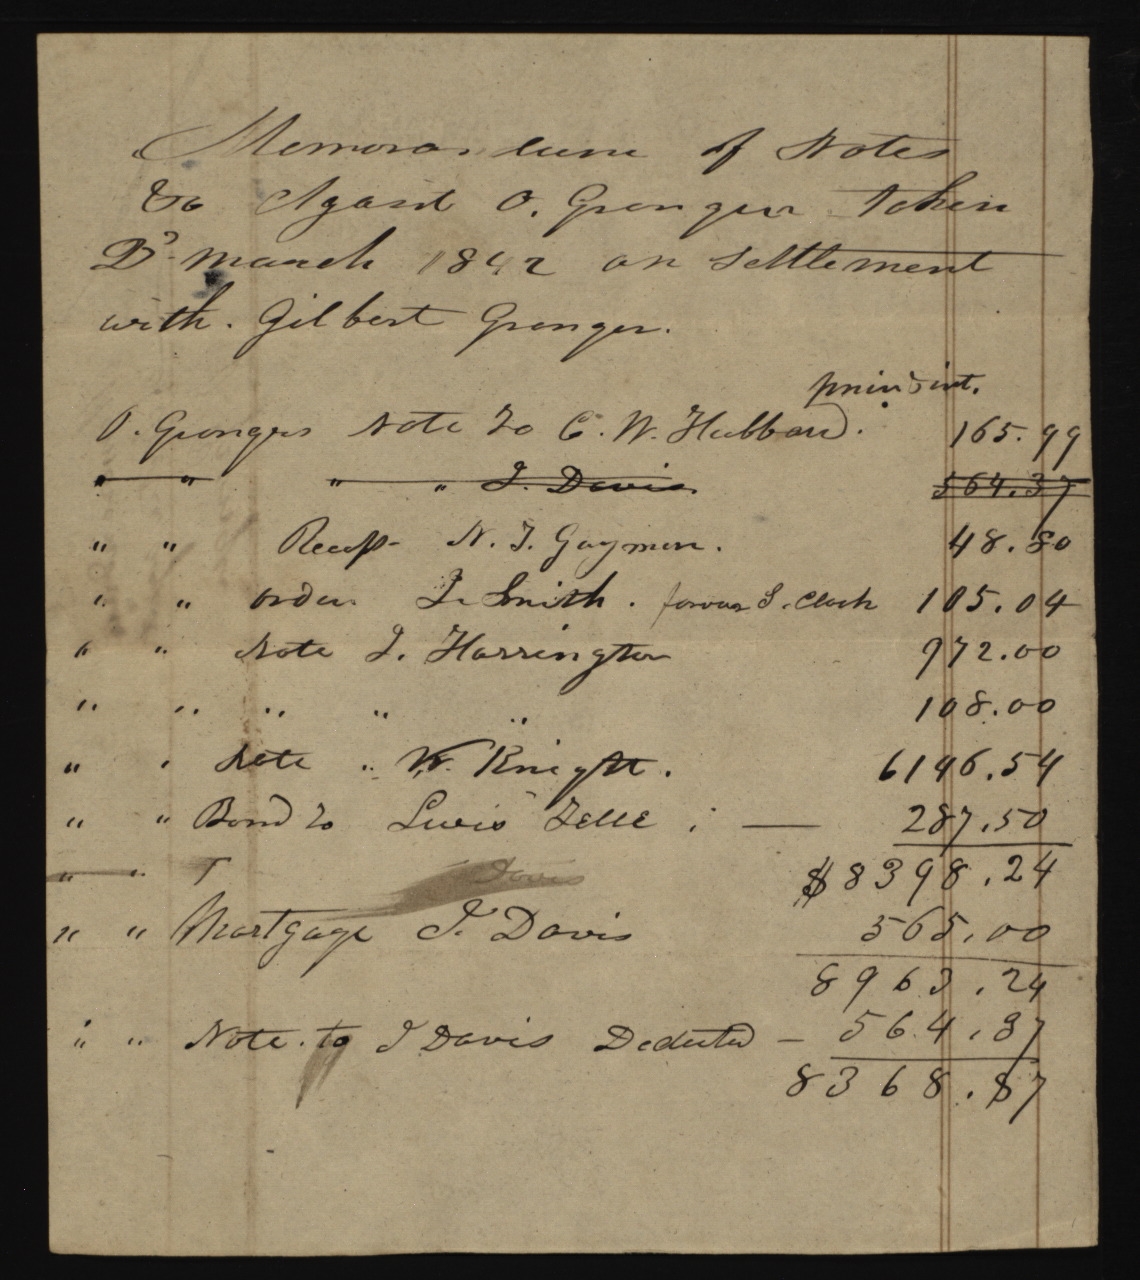 Memorandum of Notes
&c Against O. Granger taken
march 1842 on settlement
with. Gilbert Granger.
prin & int.
O. Grangers Note to C. W. Hubbard. 165.99
" " " " J. Davis 564.37
" " Recept N. J. Gaymon. 48.80
" " order J. Smith. favour S. Clark 105.04
" " Note J. Harrington 972.00
" " " " " 108.00
" " Note " W. Knight. 6146.54
" " Bond to Lewis Zelle : — 287.50
$8398.24
" " Davis
" " Mortgage J. Davis 565.00
8963.24
" " Note to J Davis Deducted — 564.37
8368.87